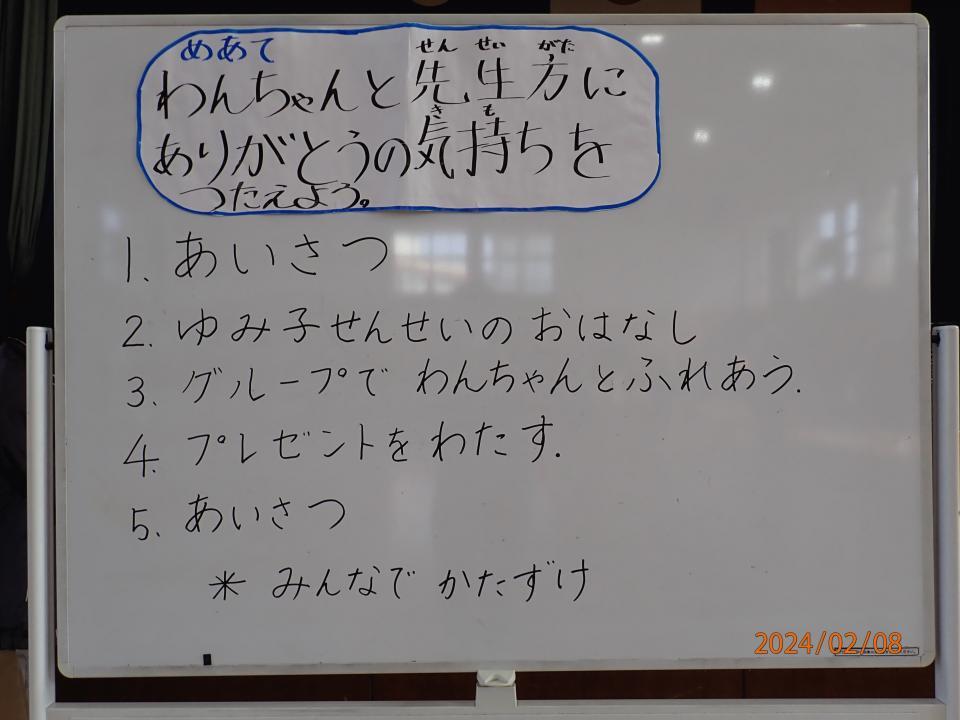 めあて
せん せい がた
わんちゃんと先生方に
き も
ありがとうの気持ちを
つたえよう。
1. あいさつ
2. ゆみ子せんせいのおはなし
3. グループで わんちゃんとふれあう.
4. プレゼントをわたす.
5. あいさつ
* みんなで かたずけ
2024/02/08